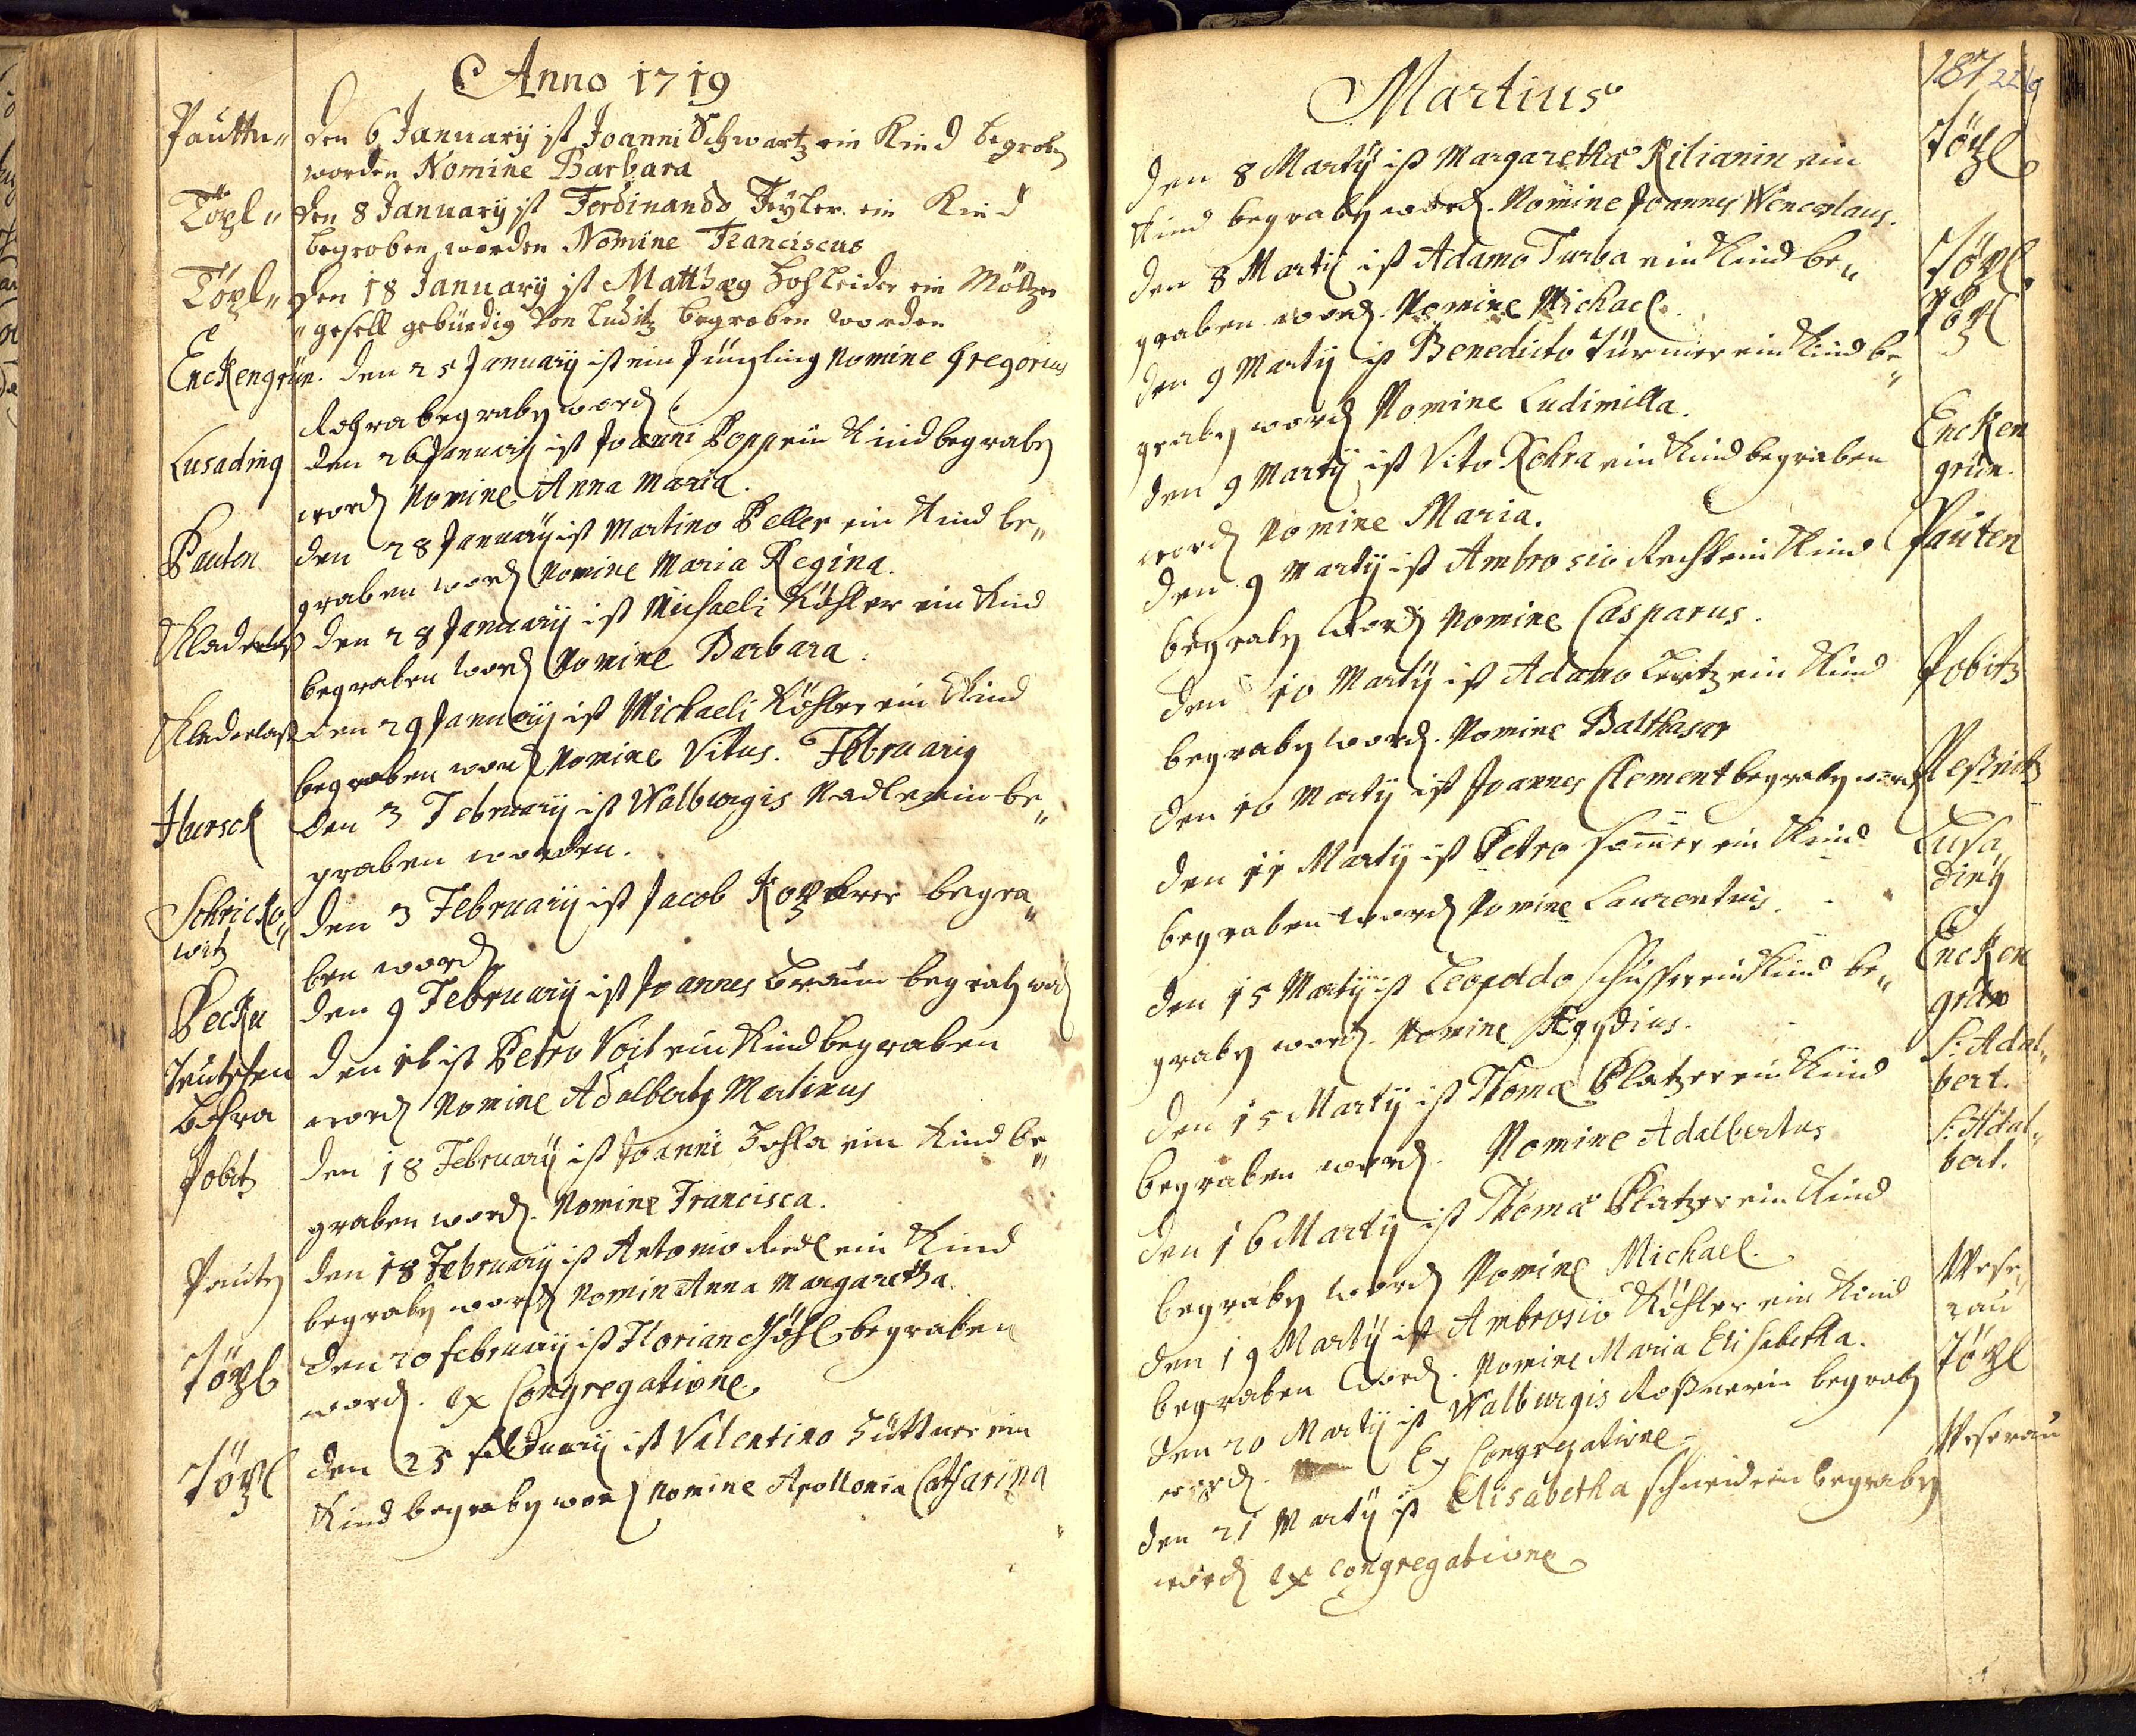 Anno 1719
Pauttn„ den 6 January ist Joanni Schwartz ein Kind begraben
worden Nomine Barbara
Töpl„ den 8 January ist Ferdinando Feyler ein Kind
begraben worden Nomine Franciscus
Töpl„ den 18 January ist Matthæg ein
„gesell gebürdig von Luditz begraben worden
Enckengrün. den 25 January ist ein Jüngling Nomine Gregorius
Rohra begraben word
Lusading den 26 January ist Joanni Popp ein Kind begraben
word Nomine Anna Maria.
Pauten den 28 January ist Martino Peller ein Kind be„
graben word Nomine Maria Regina.
Kladerlaß den 28 January ist Michaeli Köhler ein Kind
begraben word Nomine Barbara.
Kladerlaß den 29 January ist Michaeli Köhler ein Kind
begraben word Nomine Vitus. Februarij
Hursck den 3 February ist Walburgis Nadlerin be„
graben worden.
Schricko„ den 3 February ist Jacob begra„
witz
ben word
Pecku den 9 February ist Joannes Braun begrab word
Teutschen den 16 ist Petro Voit ein Kind begraben
Bohra word Nomine Adalbertg Martinus
Pobitz den 18 February ist Joanni Zohla ein Kind be„
graben word. Nomine Francisca.
Pauten den 18 February ist Antonio Riedl ein Kind
begraben word Nomin Anna Margaretha
Töpl den 20 february ist Florian Höhl begraben
word. ex Congregatione.
Töpl den 25 february ist Valentino Hüttner ein
Kind begraben word Nomine Apollonia Catharina
Martius
187 226
den 8 Martij ist Margaretha Kilianin ein Töpl
Kind begraben word. Nomine Joannes Wenceslaus.
den 8 Martij ist Adamo Turba ein Kind be„ Töpl
graben word. Nomine Michael.
den 9 Martij ist Benedicto Türmer ein Kind be„ Töpl
graben word Nomine Ludimilla.
den 9 Martij ist Vito Rohra ein Kind begraben Encken
grün.
word Nomine Maria.
den 9 Martij ist Ambrosio ein Kind Pauten
begraben word Nomine Casparus.
den 10 Martij ist Adamo Lertz ein Kind Pobitz
begraben word. Nomine Balthasar
den 10 Martij ist Joannes Clement begraben word
den 11 Martij ist Petro Somer ein Kind Lusa„
ding
begraben word Nomine Laurentius.
den 15 Martij ist Leopoldo Schusser ein Kind be„ Encken
grün
graben word. Nomine Ægydius.
den 15 Martij ist Thomæ Platzer ein Kind S: Adal„
bert.
begraben word. Nomine Adalbertus
den 16 Martij ist Thomæ Platzer ein Kind S: Adal„
bert.
begraben word Nomine Michael.
den 19 Martij ist Ambrosio Köhler ein Kind Wese„
rau
begraben word. Nomine Maria Elisabetha.
den 20 Martij ist Walburgis Roßnerin begrab Töpl
word. Ex Congregatione
den 21 Martij ist Elisabetha Schneiderin begraben Weserau
word ex congregatione